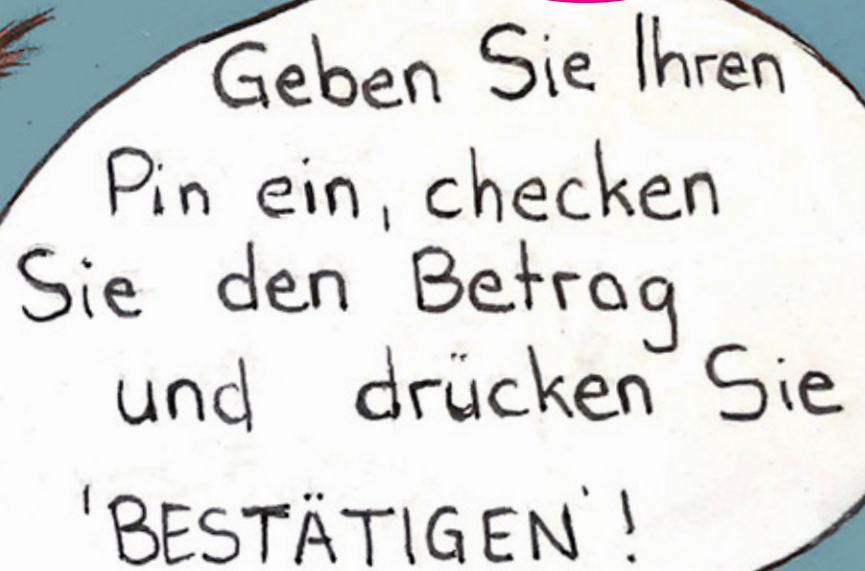 Geben Sie Ihren
Pin ein, checken
Sie den Betrag
und drücken Sie
'BESTÄTIGEN'!